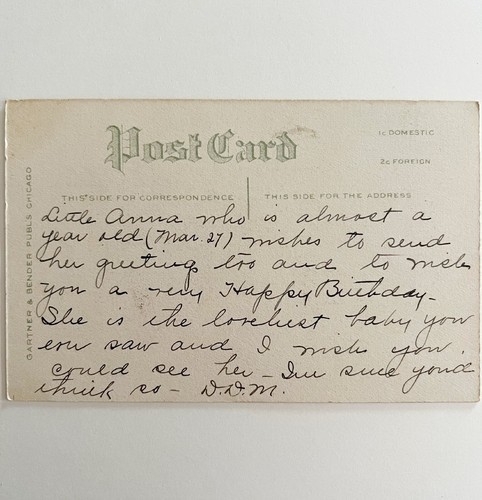 Post Card
1c DOMESTIC
2c FOREIGN
THIS SIDE FOR CORRESPONDENCE
THIS SIDE FOR THE ADDRESS
GARTNER & BENDER PUBLS CHICAGO
Little Anna who is almost a
year old (Mar. 27) wishes to send
her greeting too and to wish
you a very Happy Birthday-
She is the loveliest baby you
ever saw and I wish you
could see her - I'm sure you'd
think so - D.D.M.